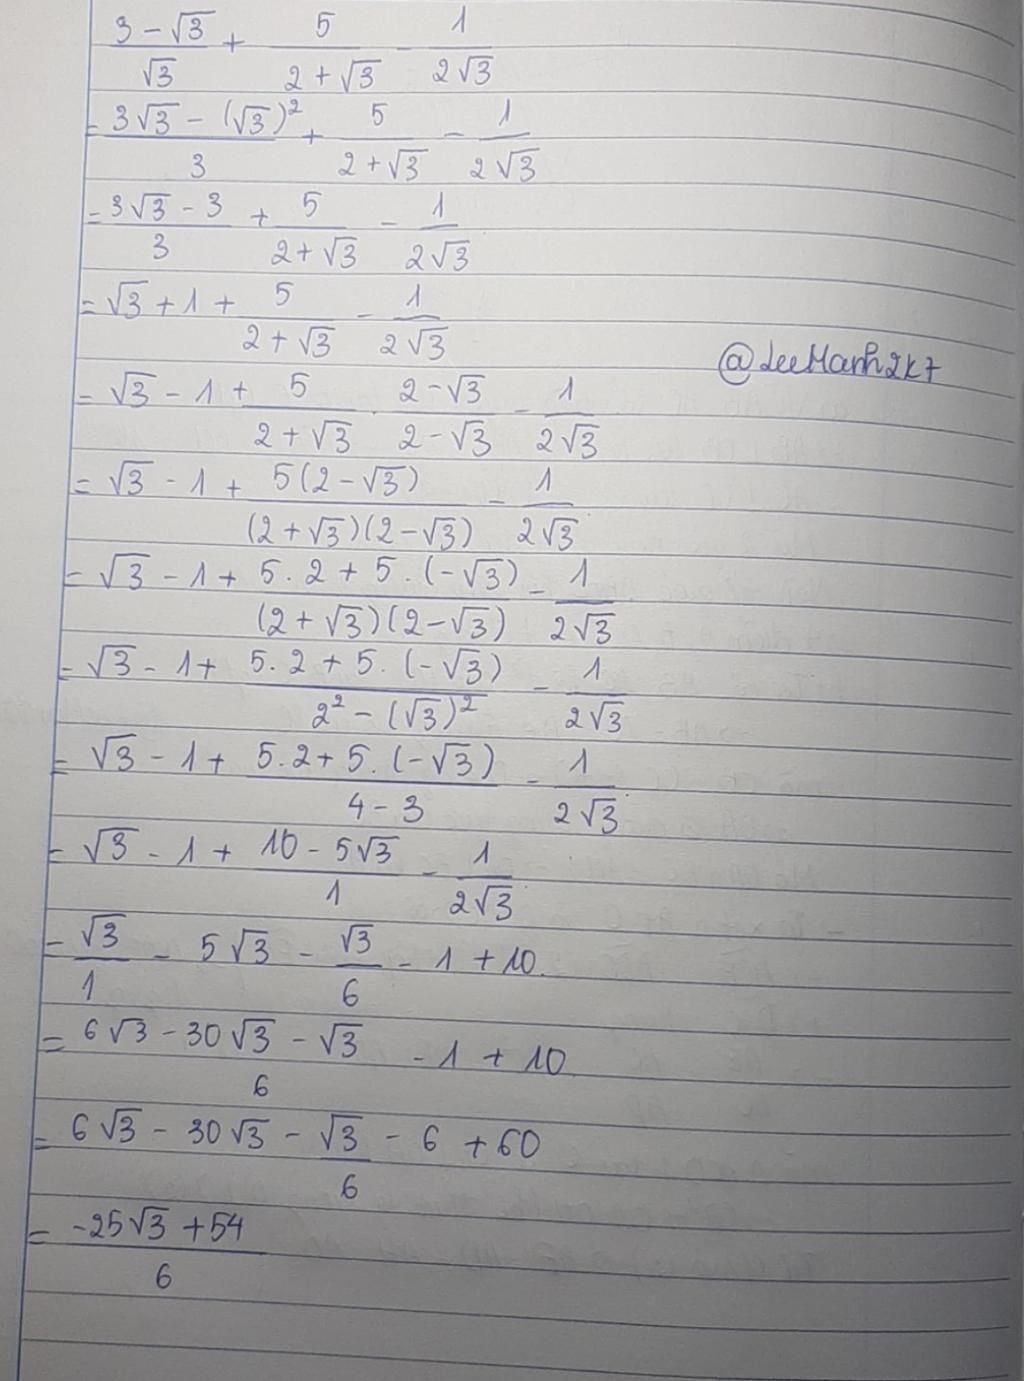 (3 - √3)/√3 + 5/(2 + √3) - 1/(2√3)
= (3√3 - (√3)²)/3 + 5/(2 + √3) - 1/(2√3)
= (3√3 - 3)/3 + 5/(2 + √3) - 1/(2√3)
= √3 + 1 + 5/(2 + √3) - 1/(2√3)
@LeeManh2k7
= √3 - 1 + 5/(2 + √3) . (2 - √3)/(2 - √3) - 1/(2√3)
= √3 - 1 + 5(2 - √3)/((2 + √3)(2 - √3)) - 1/(2√3)
= √3 - 1 + (5.2 + 5.(-√3))/((2 + √3)(2 - √3)) - 1/(2√3)
= √3 - 1 + (5.2 + 5.(-√3))/(2² - (√3)²) - 1/(2√3)
= √3 - 1 + (5.2 + 5.(-√3))/(4 - 3) - 1/(2√3)
= √3 - 1 + (10 - 5√3)/1 - 1/(2√3)
= √3/1 - 5√3 - √3/6 - 1 + 10
= (6√3 - 30√3 - √3)/6 - 1 + 10
= (6√3 - 30√3 - √3 - 6 + 60)/6
= (-25√3 + 54)/6